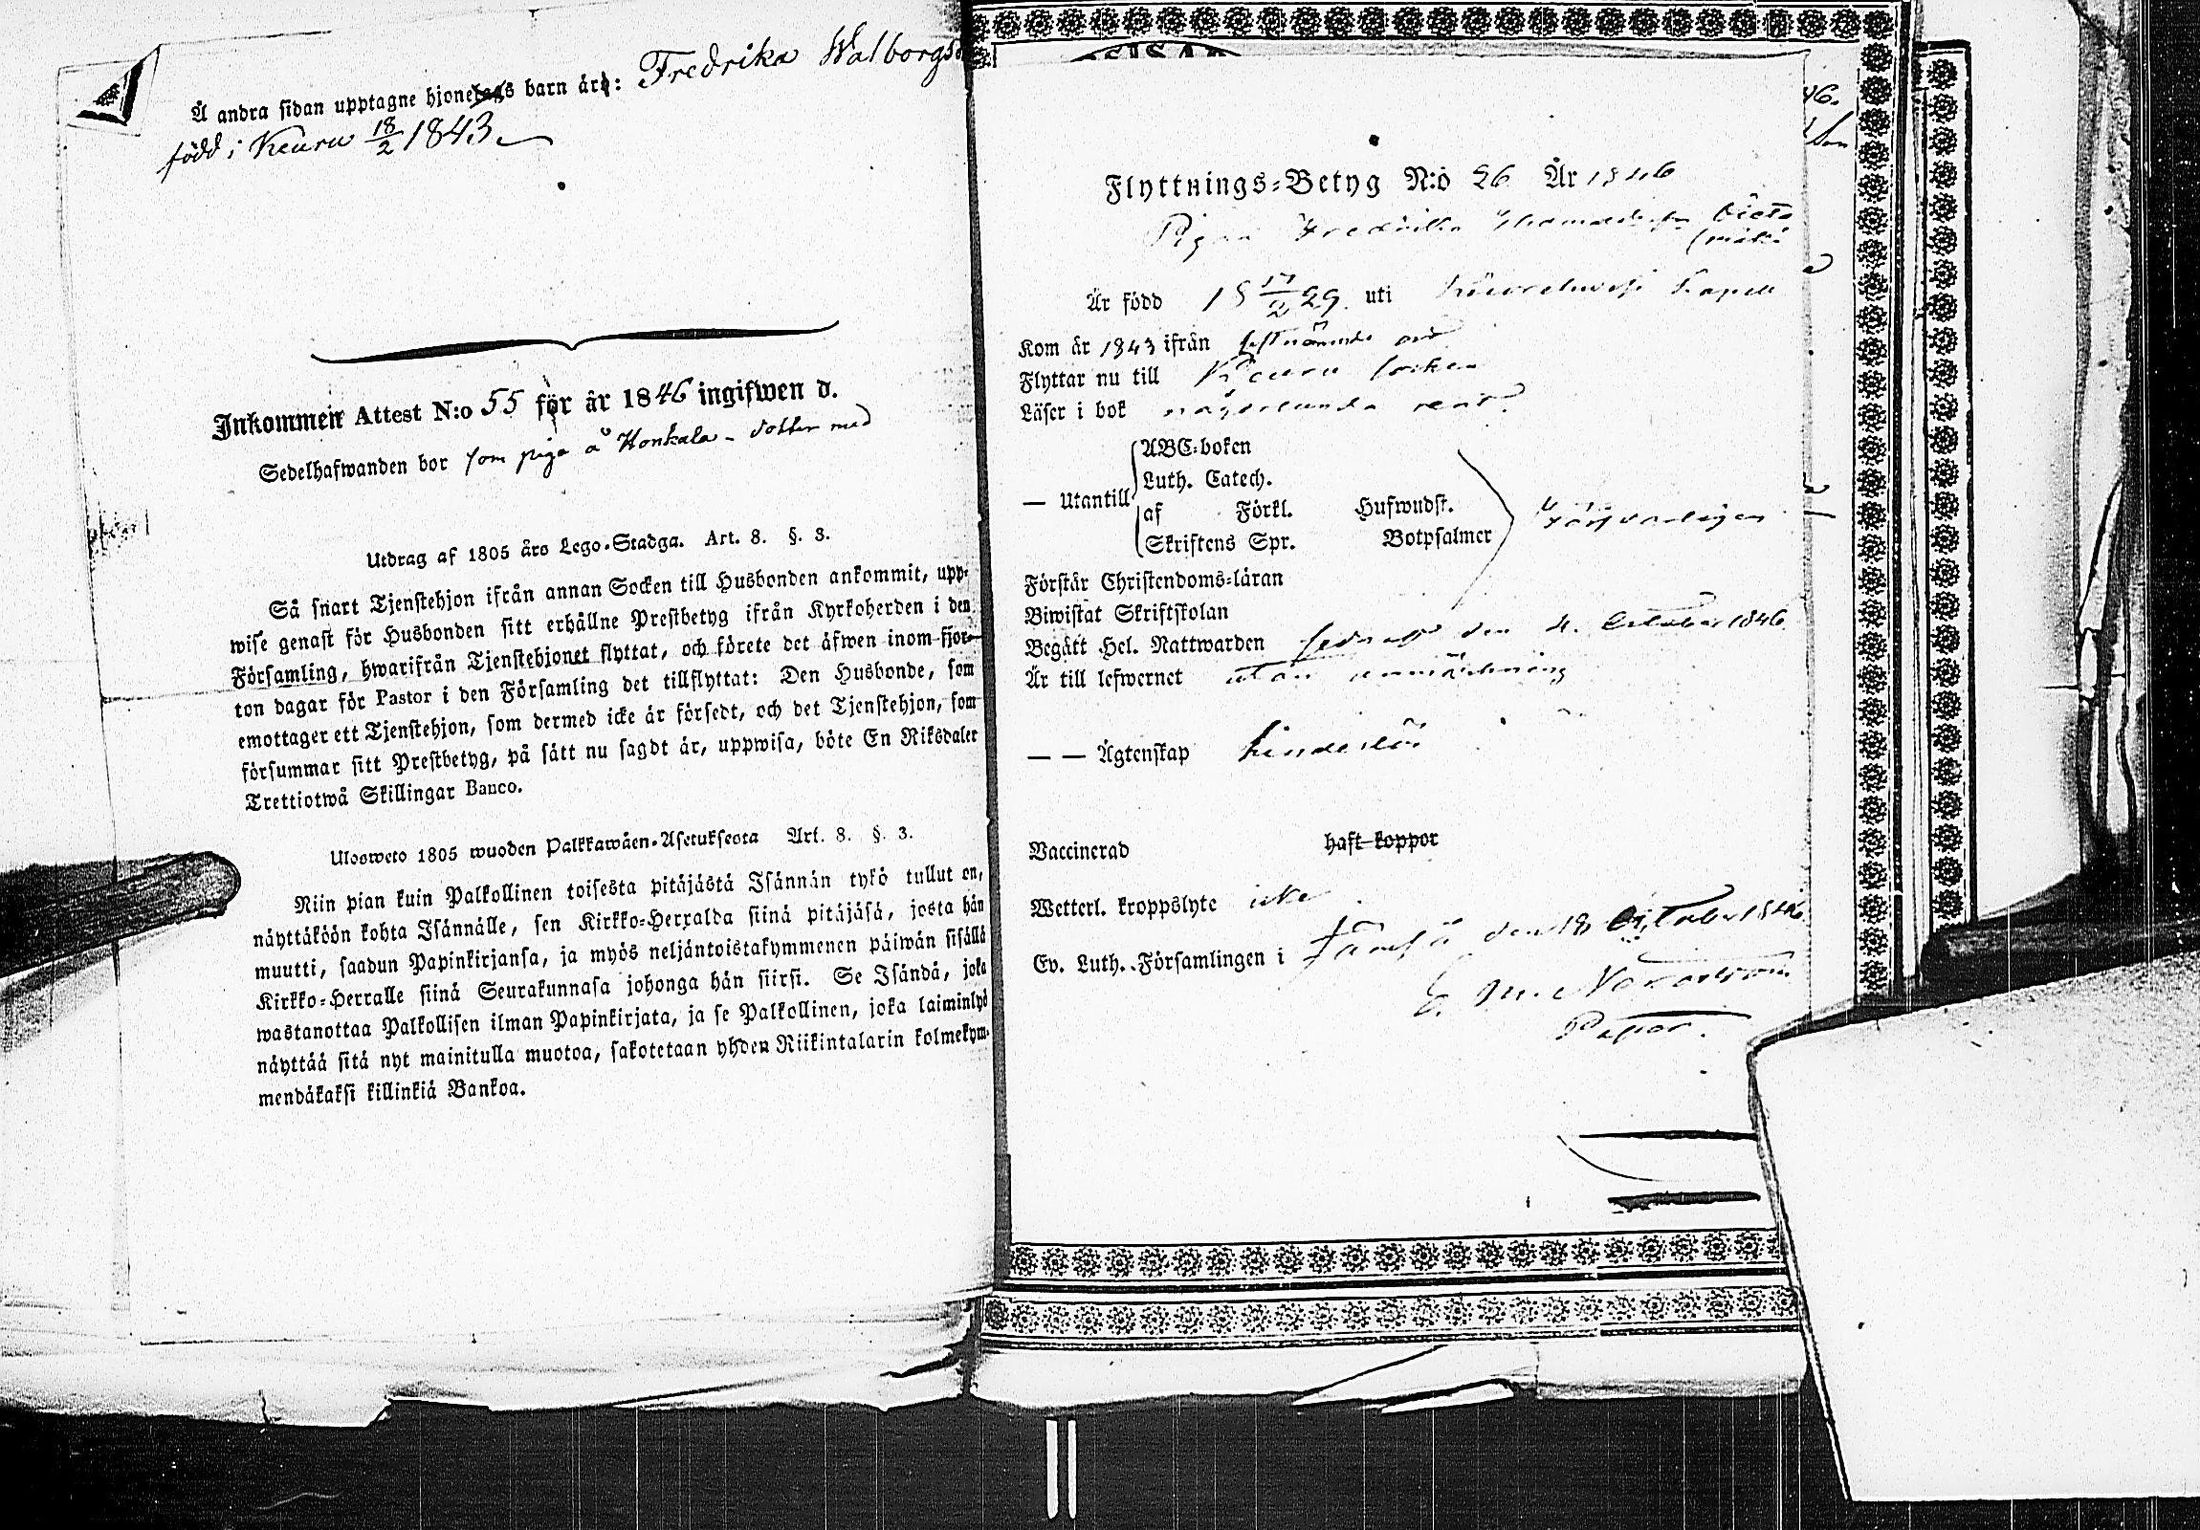 Å andra sidan upptagne hjonelags barn äro: Fredrika Walborg
född i Keuru 18/2 1843
Inkommen Attest N:o 55 för år 1846 ingifwen d.
Sedelhafwanden bor som piga å Honkala - dotter med
Utdrag af 1805 års Lego-Stadga. Art. 8. §. 3.
Så snart Tjenstehjon ifrån annan Socken till Husbonden ankommit, upp-
wise genast för Husbonden sitt erhållne Prestbetyg ifrån Kyrkoherden i den
Församling, hwarifrån Tjenstehjonet flyttat, och förete det äfwen inom fjor-
ton dagar för Pastor i den Församling det tillflyttat: Den Husbonde, som
emottager ett Tjenstehjon, som dermed icke är försedt, och det Tjenstehjon, som
försummar sitt Prestbetyg, på sätt nu sagdt är, uppwisa, böte En Riksdaler
Trettiotwå Skillingar Banco.
Ulosweto 1805 wuoden Palkkawäen-Asetuksesta Art. 8. §. 3.
Niin pian kuin Palkollinen toisesta pitäjästä Isännän tykö tullut on,
näyttäköön kohta Isännälle, sen Kirkko-Herralda siinä pitäjäsä, josta hän
muutti, saadun Papinkirjansa, ja myös neljäntoistakymmenen päiwän sisällä
Kirkko-Herralle siinä Seurakunnasa johonga hän siirsi. Se Isändä, joka
wastanottaa Palkollisen ilman Papinkirjata, ja se Palkollinen, joka laiminlyö
näyttää sitä nyt mainitulla muotoa, sakotetaan yhden Riikintalarin kolmekym-
mendäkaksi killinkiä Bankoa.
Flyttnings-Betyg N:o 26 År 1846
Pigan Fredrika
Är född 18 17/2 29 uti Kapell
Kom år 1843 ifrån sistnämnde ort
Flyttar nu till Keuru socken
Läser i bok någorlunda rent
— Utantill
ABC-boken
Luth. Catech.
af Förkl. Hufwudst.
Skriftens Spr. Botpsalmer
försvarligen
Förstår Christendoms-läran
Biwistat Skriftskolan
Begått Hel. Nattwarden sednast den 4 October 1846
Är till lefwernet utan anmärkning
— — Ägtenskap hinderlös
Vaccinerad haft koppor
Wetterl. kroppslyte icke
Ev. Luth. Församlingen i Jämsä den 18 October 1846
E. M. Nordström
Pastor.